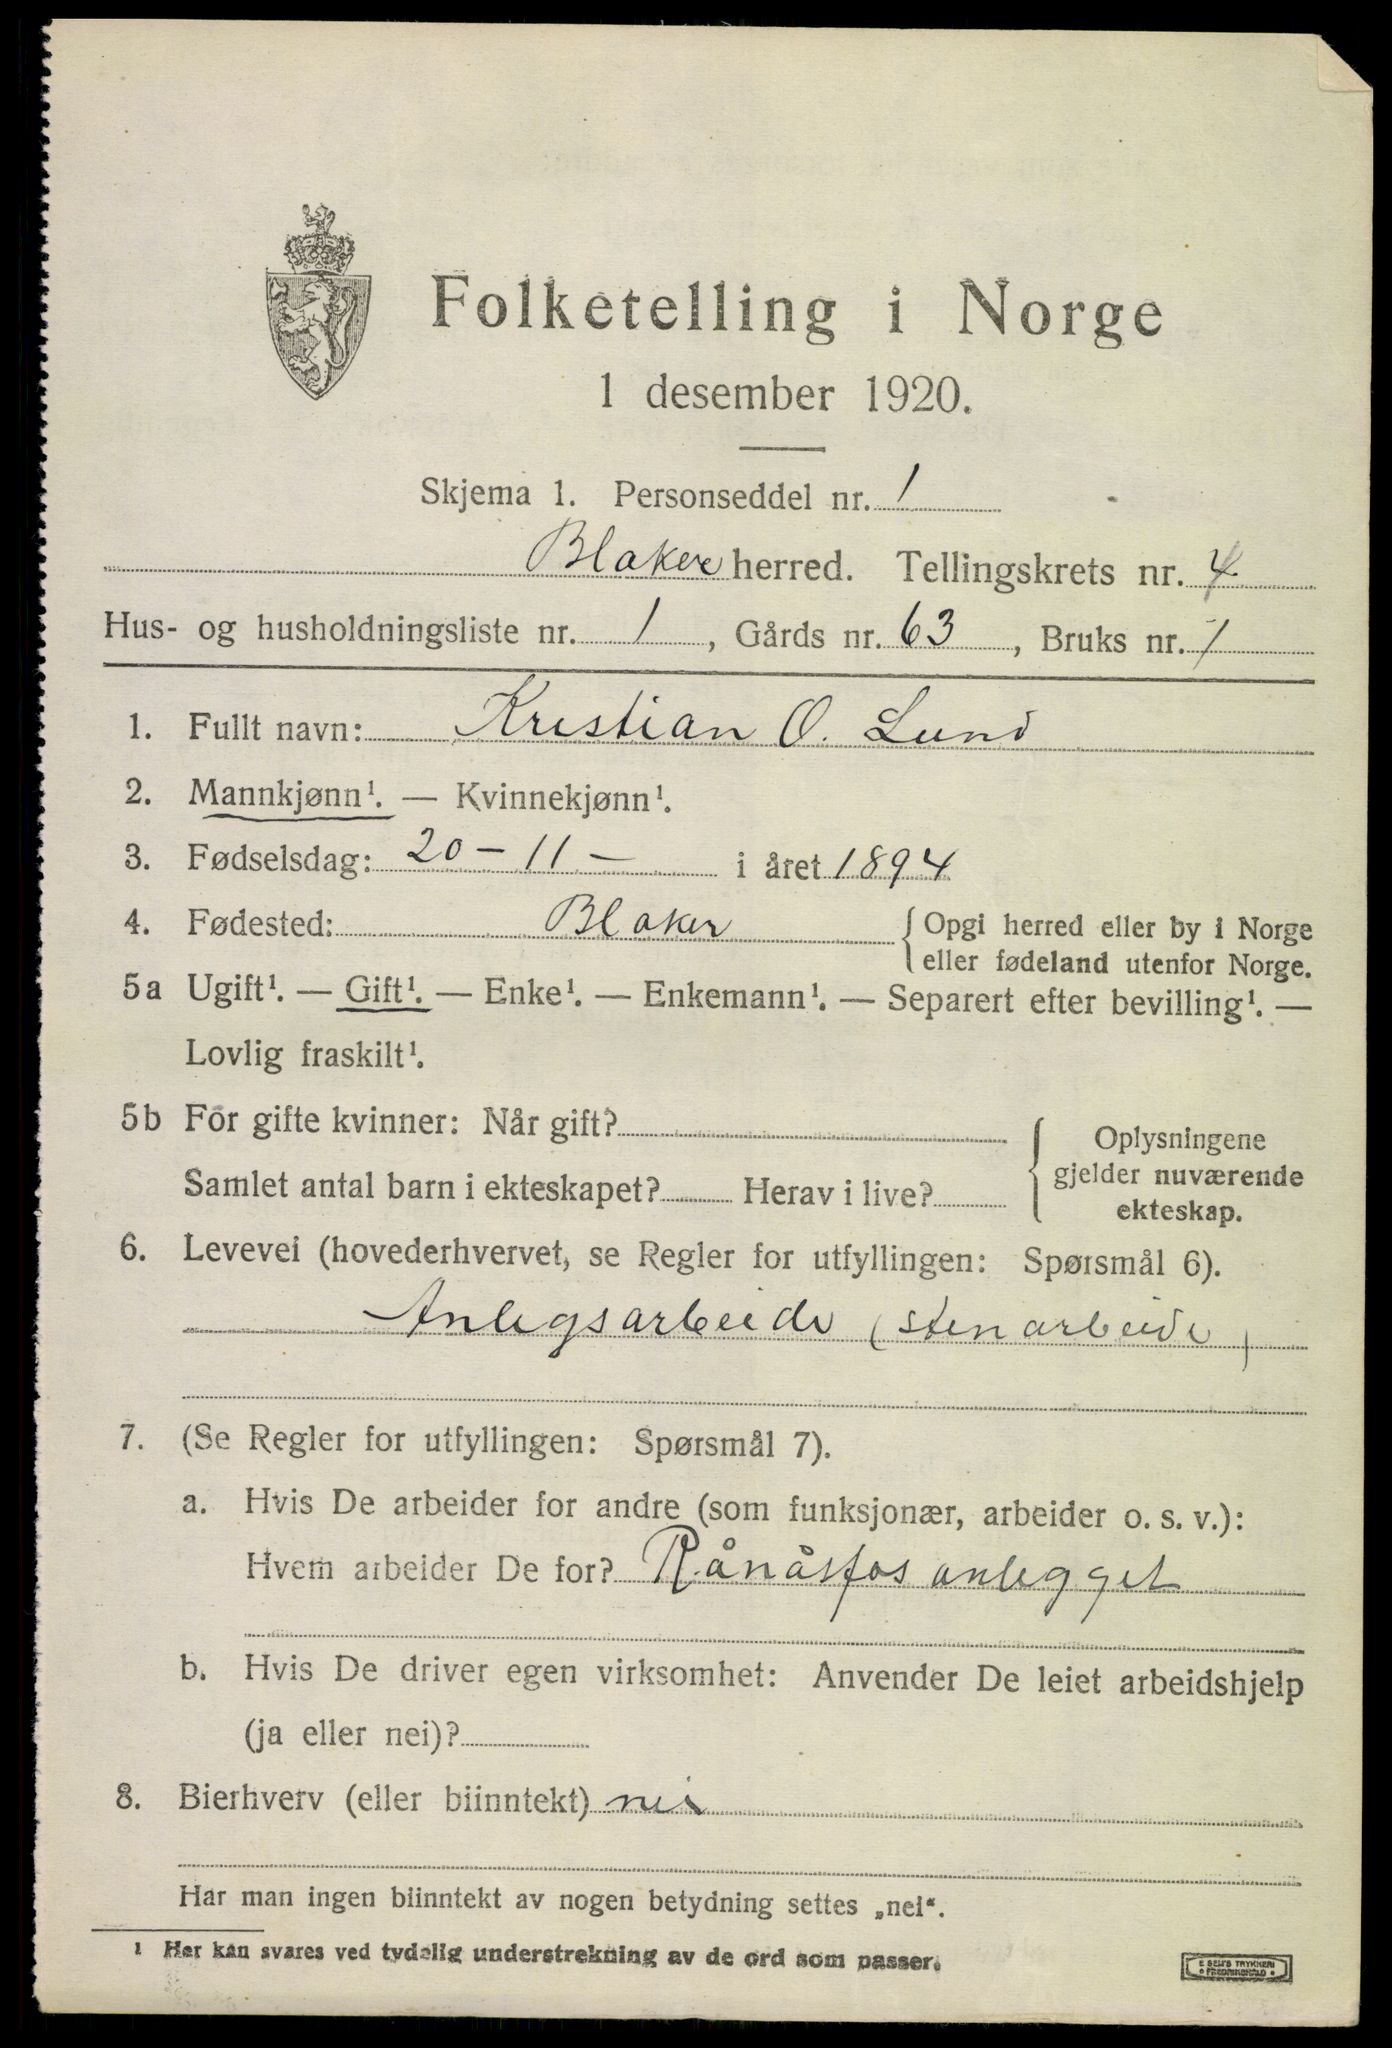 Folketelling i Norge
1 desember 1920.
Skjema 1. Personseddel nr. 1
Blaker herred. Tellingskrets nr. 4
Hus- og husholdningsliste nr. 1, Gårds nr. 63, Bruks nr. 1
1. Fullt navn: Kristian O. Lund
2. Mannkjønn¹. — Kvinnekjønn¹.
3. Fødselsdag: 20 - 11 - i året 1894
4. Fødested: Blaker { Opgi herred eller by i Norge
eller fødeland utenfor Norge.
5a Ugift¹. — Gift¹. — Enke¹. — Enkemann¹. — Separert efter bevilling¹. —
Lovlig fraskilt¹.
5b For gifte kvinner: Når gift?
Samlet antal barn i ekteskapet? Herav i live?
{ Oplysningene
gjelder nuværende
ekteskap.
6. Levevei (hovederhvervet, se Regler for utfyllingen: Spørsmål 6).
Anlegsarbeide (stenarbeide)
7. (Se Regler for utfyllingen: Spørsmål 7).
a. Hvis De arbeider for andre (som funksjonær, arbeider o. s. v.):
Hvem arbeider De for? Rånåsfos anlegget
b. Hvis De driver egen virksomhet: Anvender De leiet arbeidshjelp
(ja eller nei)?
8. Bierhverv (eller biinntekt) nei
Har man ingen biinntekt av nogen betydning settes „nei“.
¹ Her kan svares ved tydelig understrekning av de ord som passer.
E SEM'S TRYKKERI
• FREDRIKSHALD •